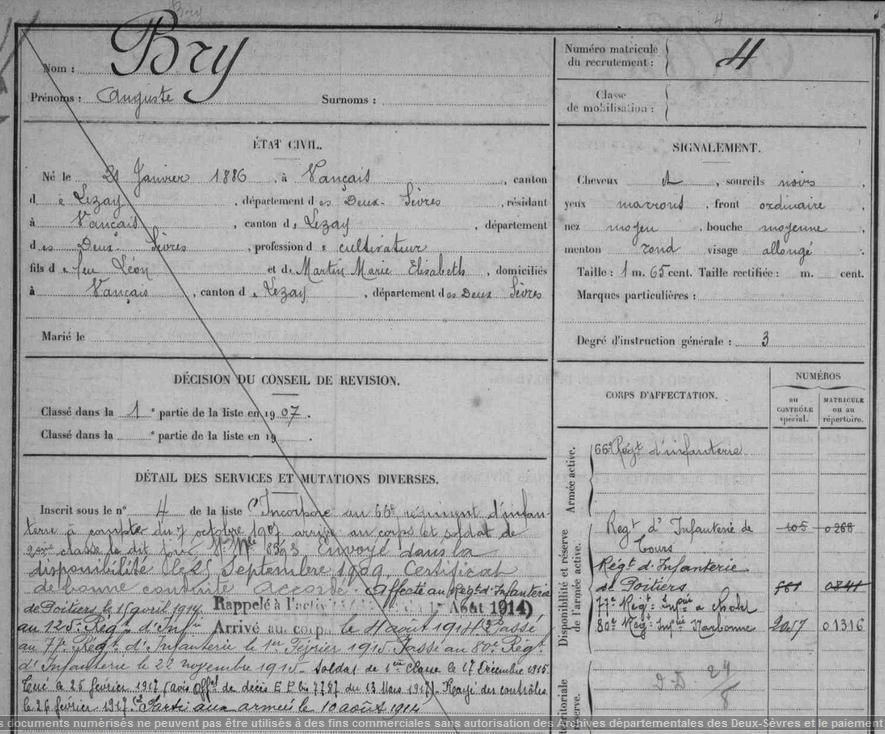 Bry
4
Nom : Bry
Prénoms : Auguste Surnoms :
Numéro matricule
du recrutement : 4
Classe
de mobilisation :
ÉTAT CIVIL.
Né le 21 Janvier 1886, à Vançais, canton
de Lezay, département des Deux-Sèvres, résidant
à Vançais, canton de Lezay, département
des Deux Sèvres, profession de cultivateur
fils de feu Léon et de Martin Marie Elisabeth, domiciliés
à Vançais, canton de Lezay, département des Deux Sèvres
Marié le
SIGNALEMENT.
Cheveux et, sourcils noirs,
yeux marrons, front ordinaire,
nez moyen, bouche moyenne,
menton rond visage allongé
Taille : 1 m. 65 cent. Taille rectifiée : m. cent.
Marques particulières :
Degré d'instruction générale : 3
DÉCISION DU CONSEIL DE REVISION.
Classé dans la 1e partie de la liste en 1907.
Classé dans la e partie de la liste en 19
DÉTAIL DES SERVICES ET MUTATIONS DIVERSES.
Inscrit sous le n° 4 de la liste Incorporé au 66e régiment d'infan-
terie à compter du 7 octobre 1907 arrivé au corps et soldat de
2eme classe le dit jour. No Mle 8593. Envoyé dans la
disponibilité le 25 Septembre 1909. Certificat
de bonne conduite Accordé. Affecté au Régt d'Infanterie
de Poitiers le 15 avril 1914. Rappelé à l'activité Août 1914)
au 125e Régt d'Infie Arrivé au corps le 4 août 1914 Passé
au 77e Régt d'Infanterie le 1er Février 1915 Passé au 80e Régt
d'Infanterie le 22 novembre 1915. Soldat de 1ère Classe le 17 Décembre 1915.
Tué le 25 février 1917 (avis offel de décès du 13 Mars 1917). Rayé des contrôles
le 26 février 1917. Parti aux armées le 10 août 1914
CORPS D'AFFECTATION.
NUMÉROS
au
CONTRÔLE
spécial.
MATRICULE
ou au
répertoire.
Armée active.
66e Régt d'infanterie
Disponibilité et réserve
de l'armée active.
Regt d'Infanterie de
Tours 105 0268
Régt d'Infanterie
de Poitiers
77e Régt Infie à Cholet
80e Régt Infie Narbonne 2057 01316
territoriale
réserve.
24
8
s documents numérisés ne peuvent pas être utilisés à des fins commerciales sans autorisation des Archives départementales des Deux-Sèvres et le paiement